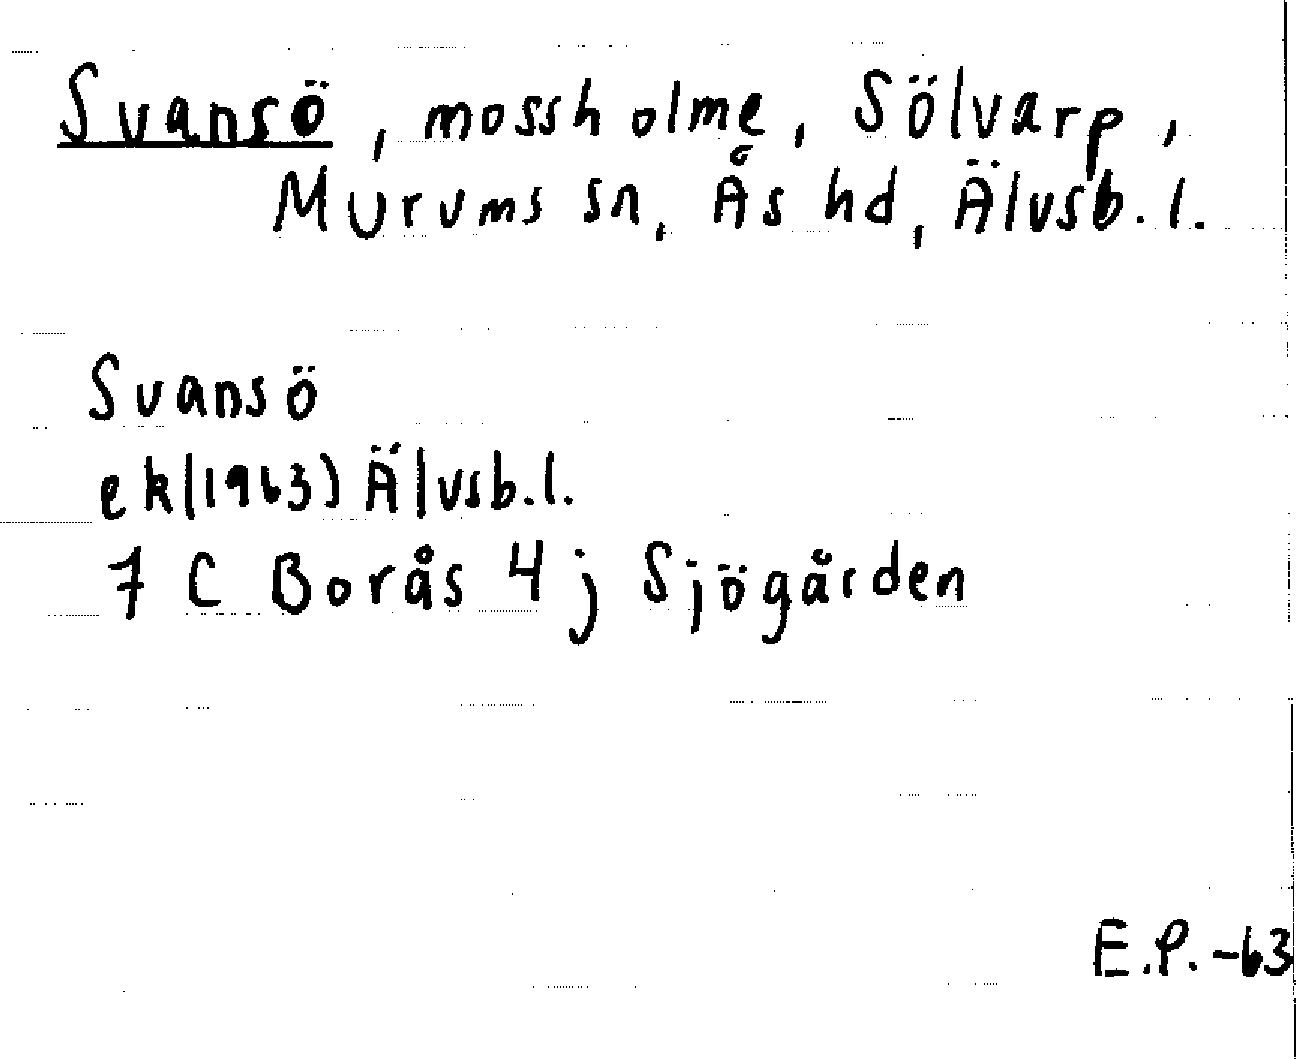 Svansö, mossholme, Sölvarp,
Murums sn, Ås hd, Älvsb. l.
Svansö
ek (1963) Älvsb. l.
7 C Borås 4 j Sjögården
E.P. -63